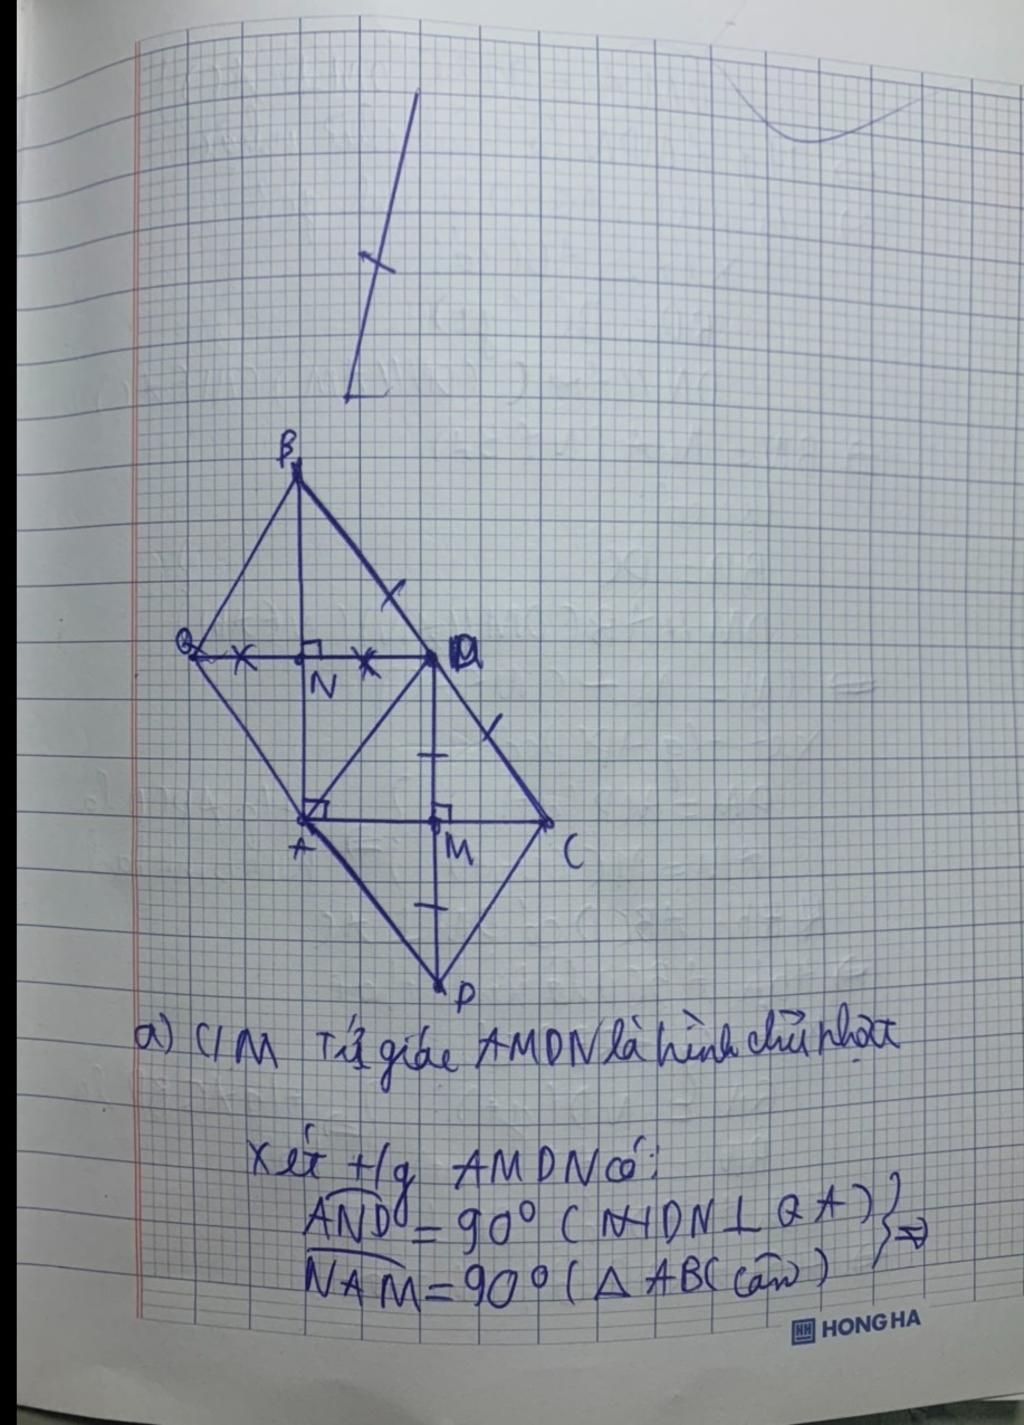 B
Q
N
D
A
M
C
P
a) C/M Tứ giác AMDN là hình chữ nhật
Xét t/g AMDN có:
AND = 90° ( DN ⊥ QA ) } ⇒
NAM = 90° ( Δ ABC cân )
HH HONG HA